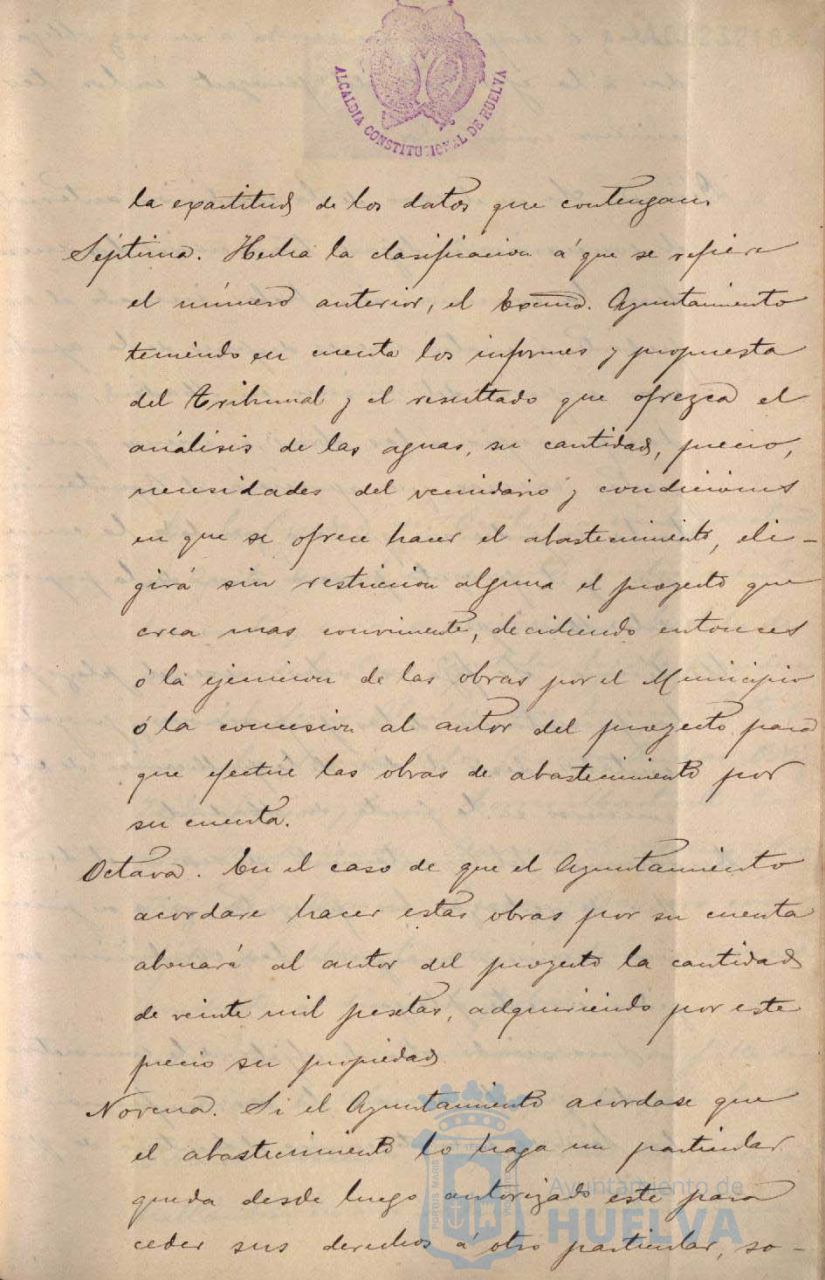 ALCALDIA CONSTITUCIONAL DE HUELVA
la exactitud de los datos que contengan.
Séptima. Hecha la clasificacion á que se refiere
el número anterior, el Excmo. Ayuntamiento
teniendo en cuenta los informes y propuesta
del Tribunal y el resultado que ofrezca el
análisis de las aguas, su cantidad, precio,
necesidades del vecindario y condiciones
en que se ofrece hacer el abastecimiento, eli-
girá sin restriccion alguna el proyecto que
crea mas conveniente, decidiendo entonces
ó la ejecucion de las obras por el Municipio
ó la concesion al autor del proyecto para
que efectúe las obras de abastecimiento por
su cuenta.
Octava. En el caso de que el Ayuntamiento
acordare hacer estas obras por su cuenta
abonará al autor del proyecto la cantidad
de veinte mil pesetas, adquiriendo por este
precio su propiedad
Novena. Si el Ayuntamiento acordase que
el abastecimiento lo haga un particular
queda desde luego autorizado este para
ceder sus derechos á otro particular, so-
Ayuntamiento de
HUELVA